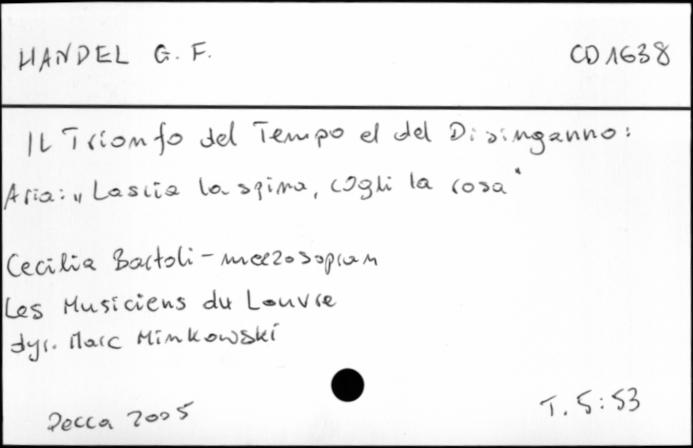 HANDEL G. F.
CD 1638
IL Trionfo del Tempo el del Disinganno:
Aria: „Lascia la spina, cogli la rosa"
Cecilia Bartoli - mezzosopran
Les Musiciens du Louvre
dyr. Marc Minkowski
Decca 2005
T. 5:53